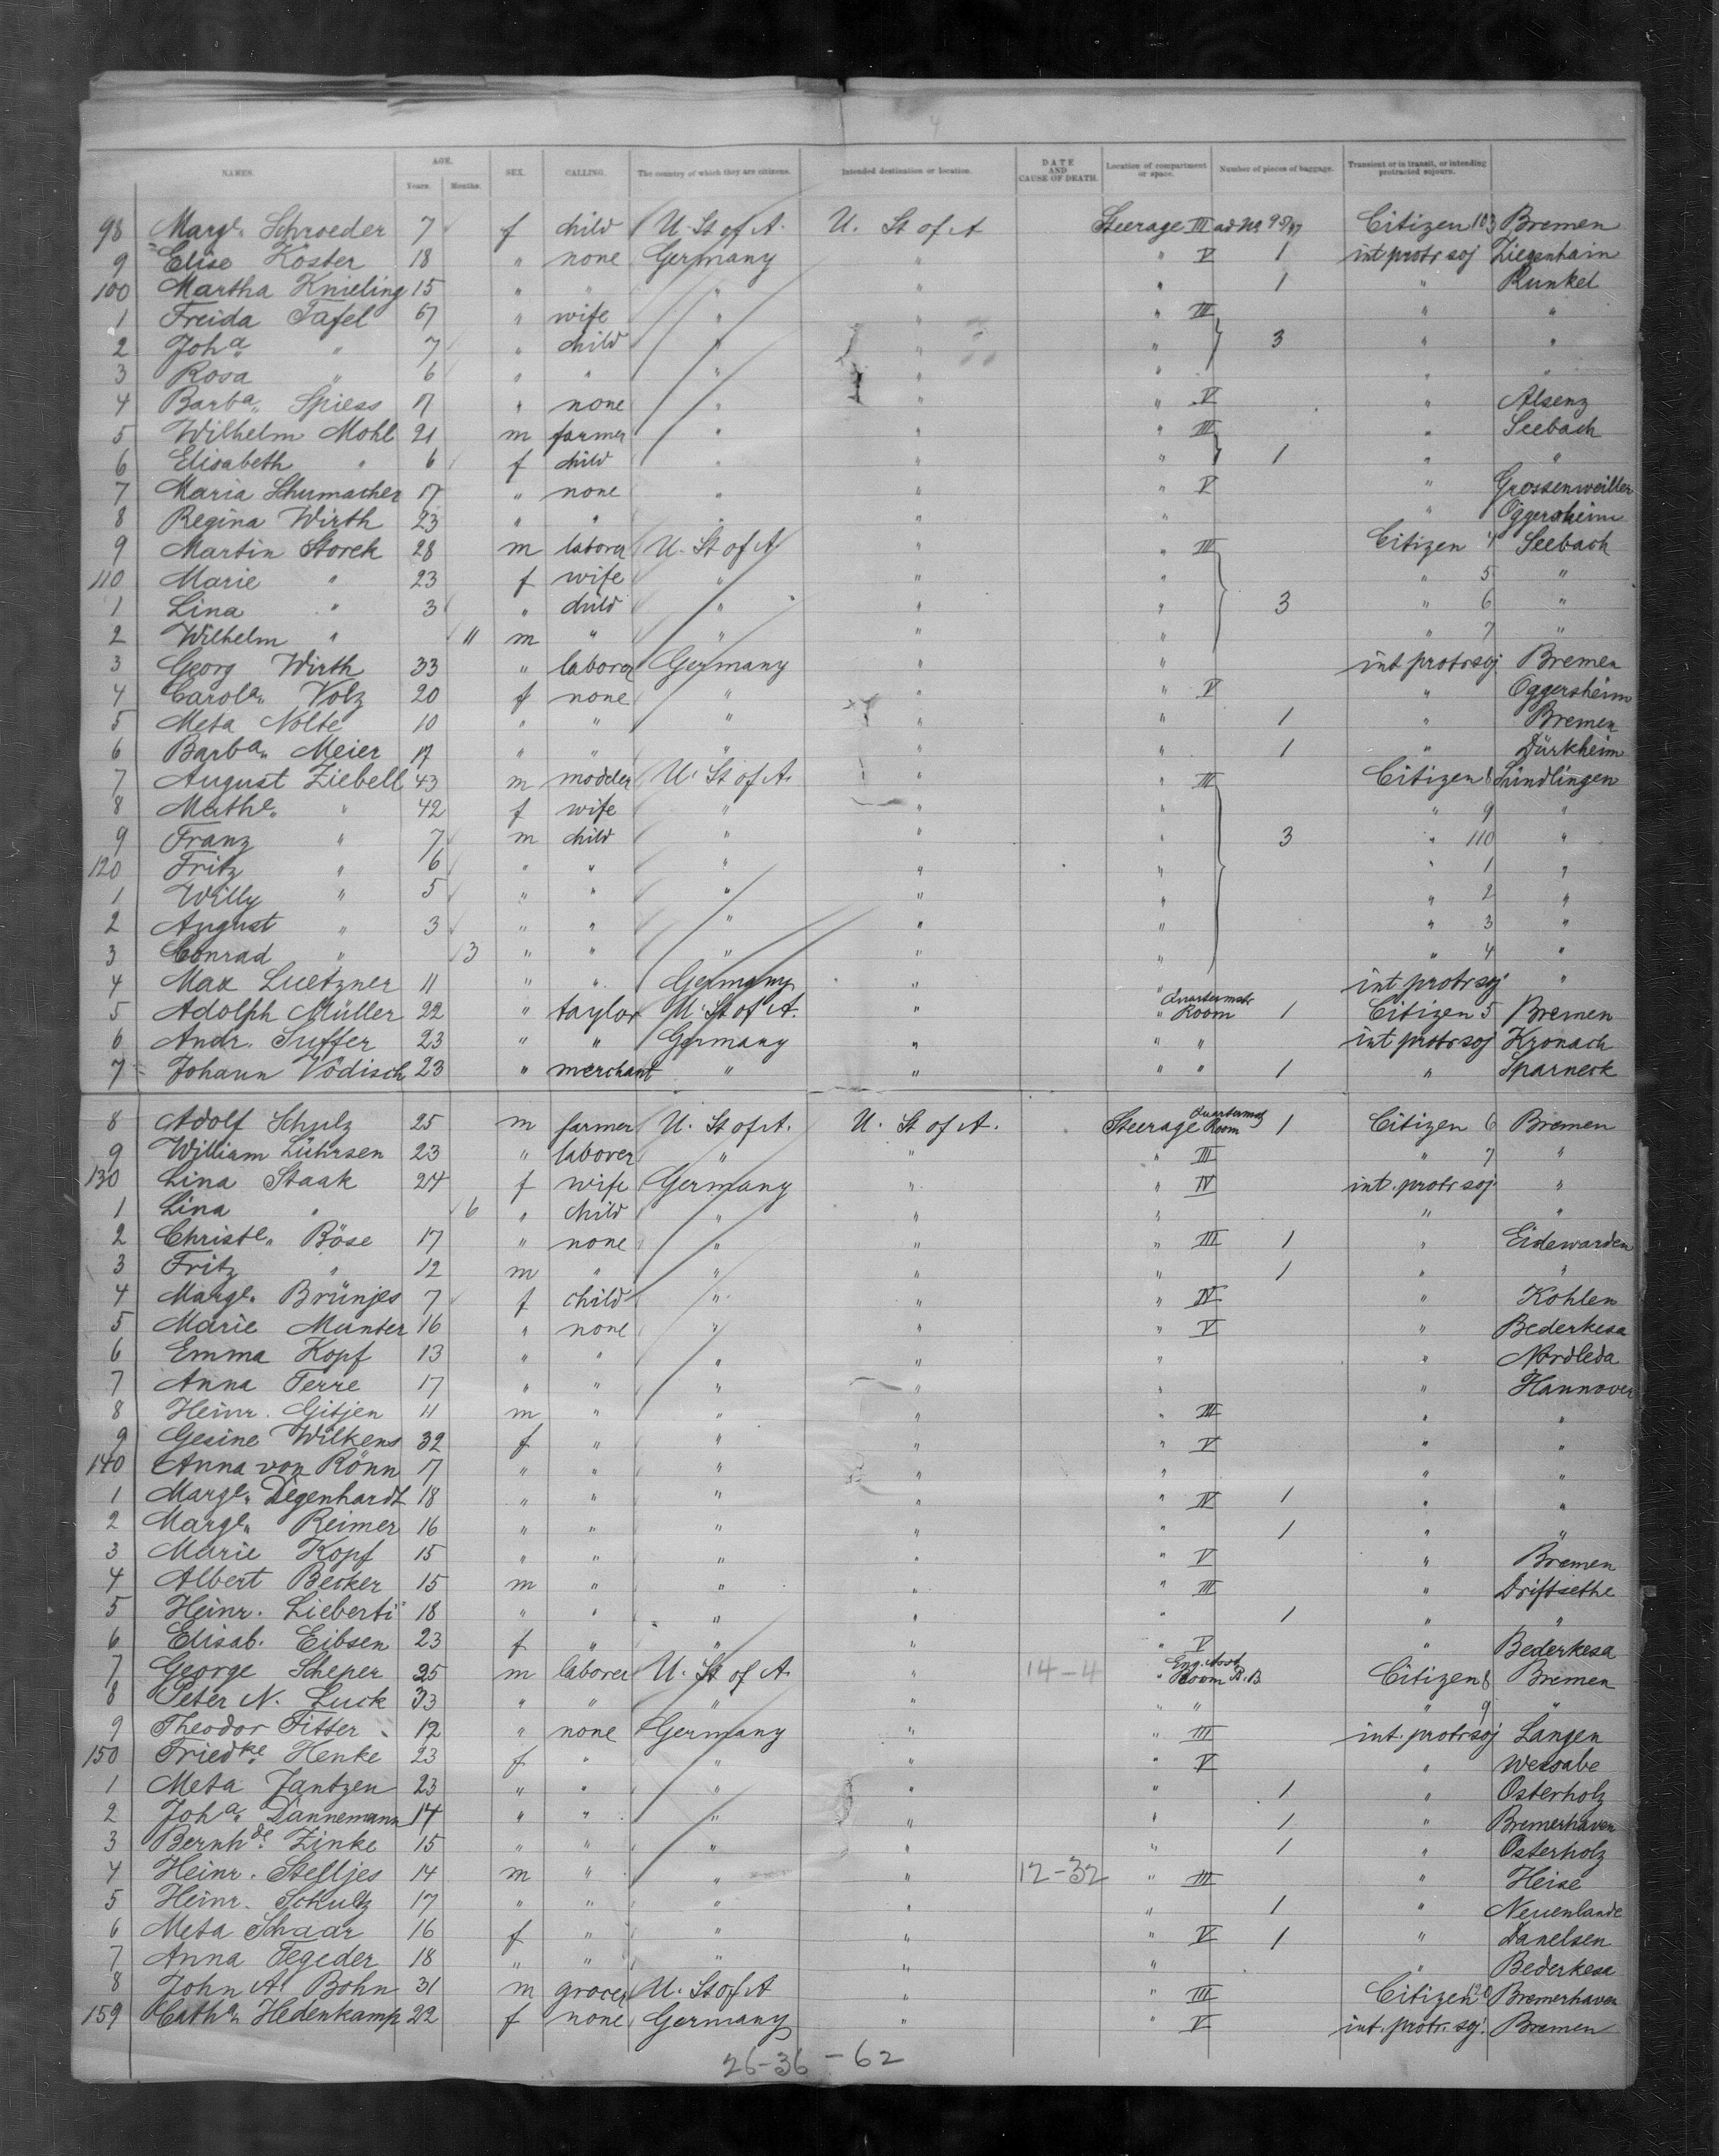 NAMES. AGE. Years. Months. SEX. CALLING. The country of which they are citizens. Intended destination or location. DATE AND CAUSE OF DEATH. Location of compartment or space. Number of pieces of baggage. Transient or in transit, or intending protracted sojourn.
98 Marge. Schroeder 7 f child U. St of A. U. St of A Steerage III ad No 95/97 Citizen 103 Bremen
9 Elise Köster 18 " none Germany " " V 1 int protr soj Ziegenhain
100 Martha Knieling 15 " " " " " 1 " Runkel
1 Freida Tafel 67 " wife " " " III " "
2 Joha. " 7 " child " " " 3 " "
3 Rosa " 6 " " " " " " "
4 Barba. Spiess 17 " none " " " V " Alsenz
5 Wilhelm Mohl 21 m farmer " " " III " Seebach
6 Elisabeth " 6 f child " " " 1 " "
7 Maria Schumacher 17 " none " " " V " Grossenweiller
8 Regina Wirth 23 " " " " " " Oggersheim
9 Martin Storck 28 m laborer U. St of A " " III Citizen 4 Seebach
110 Marie " 23 f wife " " " " 5 "
1 Lina " 3 " child " " " 3 " 6 "
2 Wilhelm " 11 m " " " " " 7 "
3 Georg Wirth 33 " laborer Germany " " int protr soj Bremen
4 Carola. Volz 20 f none " " " V " Oggersheim
5 Meta Nolte 10 " " " " " 1 " Bremen
6 Barba. Meier 17 " " " " " 1 " Dürkheim
7 August Ziebell 43 m modder U. St of A. " " III Citizen 8 Sindlingen
8 Mathe. " 42 f wife " " " " 9 "
9 Franz " 7 m child " " " 3 " 110 "
120 Fritz " 6 " " " " " " 1 "
1 Willy " 5 " " " " " " 2 "
2 August " 3 " " " " " " 3 "
3 Conrad " 3 " " " " " " 4 "
4 Max Luetzner 11 " " Germany " " int protr soj "
5 Adolph Müller 22 " taylor U. St of A. " " Quartermstr Room 1 Citizen 5 Bremen
6 Andr. Suffer 23 " " Germany " " " int protr soj Kronach
7 Johann Vödisch 23 " merchant " " " " 1 " Sparneck
8 Adolf Schulz 25 m farmer U. St of A. U. St of A. Steerage Quartermstr Room 1 Citizen 6 Bremen
9 William Lührsen 23 " laborer " " " III " 7 "
130 Lina Staak 24 f wife Germany " " IV int. protr soj "
1 Lina " 6 " child " " " " "
2 Christe. Böse 17 " none " " " III 1 " Eidewarden
3 Fritz " 12 m " " " " 1 " "
4 Marge. Brünjes 7 f child " " " IV " Köhlen
5 Marie Munter 16 " none " " " V " Bederkesa
6 Emma Kopf 13 " " " " " " Nordleda
7 Anna Ferre 17 " " " " " " Hannover
8 Heinr. Gitjen 11 m " " " " III " "
9 Gesine Wilkens 32 f " " " " V " "
140 Anna von Rönn 17 " " " " " " "
1 Marge. Degenhardt 18 " " " " " IV 1 " "
2 Marge. Reimer 16 " " " " " 1 " "
3 Marie Kopf 15 " " " " " V " Bremen
4 Albert Becker 15 m " " " " III " Driftsethe
5 Heinr. Lieberti 18 " " " " " 1 " "
6 Elisab. Eibsen 23 f " " " " V " Bederkesa
7 George Scheper 25 m laborer U. St of A. " 14-4 " Eng. Room B.B. Citizen 8 Bremen
8 Peter N. Luck 33 " " " " " " " 9 "
9 Theodor Fitter 12 " none Germany " " III int. protr soj Langen
150 Friedke. Henke 23 f " " " " V " Wersabe
1 Meta Jantzen 23 " " " " " 1 " Osterholz
2 Joha. Dannemann 14 " " " " " 1 " Bremerhaven
3 Bernhde. Zinke 15 " " " " " 1 " Osterholz
4 Heinr. Stelljes 14 m " " " 12-32 " III " Heise
5 Heinr. Schultz 17 " " " " " 1 " Neuenlande
6 Meta Schaar 16 f " " " " V 1 " Danelsen
7 Anna Tegeder 18 " " " " " " Bederkesa
8 John A. Bohn 31 m grocer U. St of A " " III Citizen 120 Bremerhaven
159 Catha. Hedenkamp 22 f none Germany " " V int. protr. soj. Bremen
26-36-62